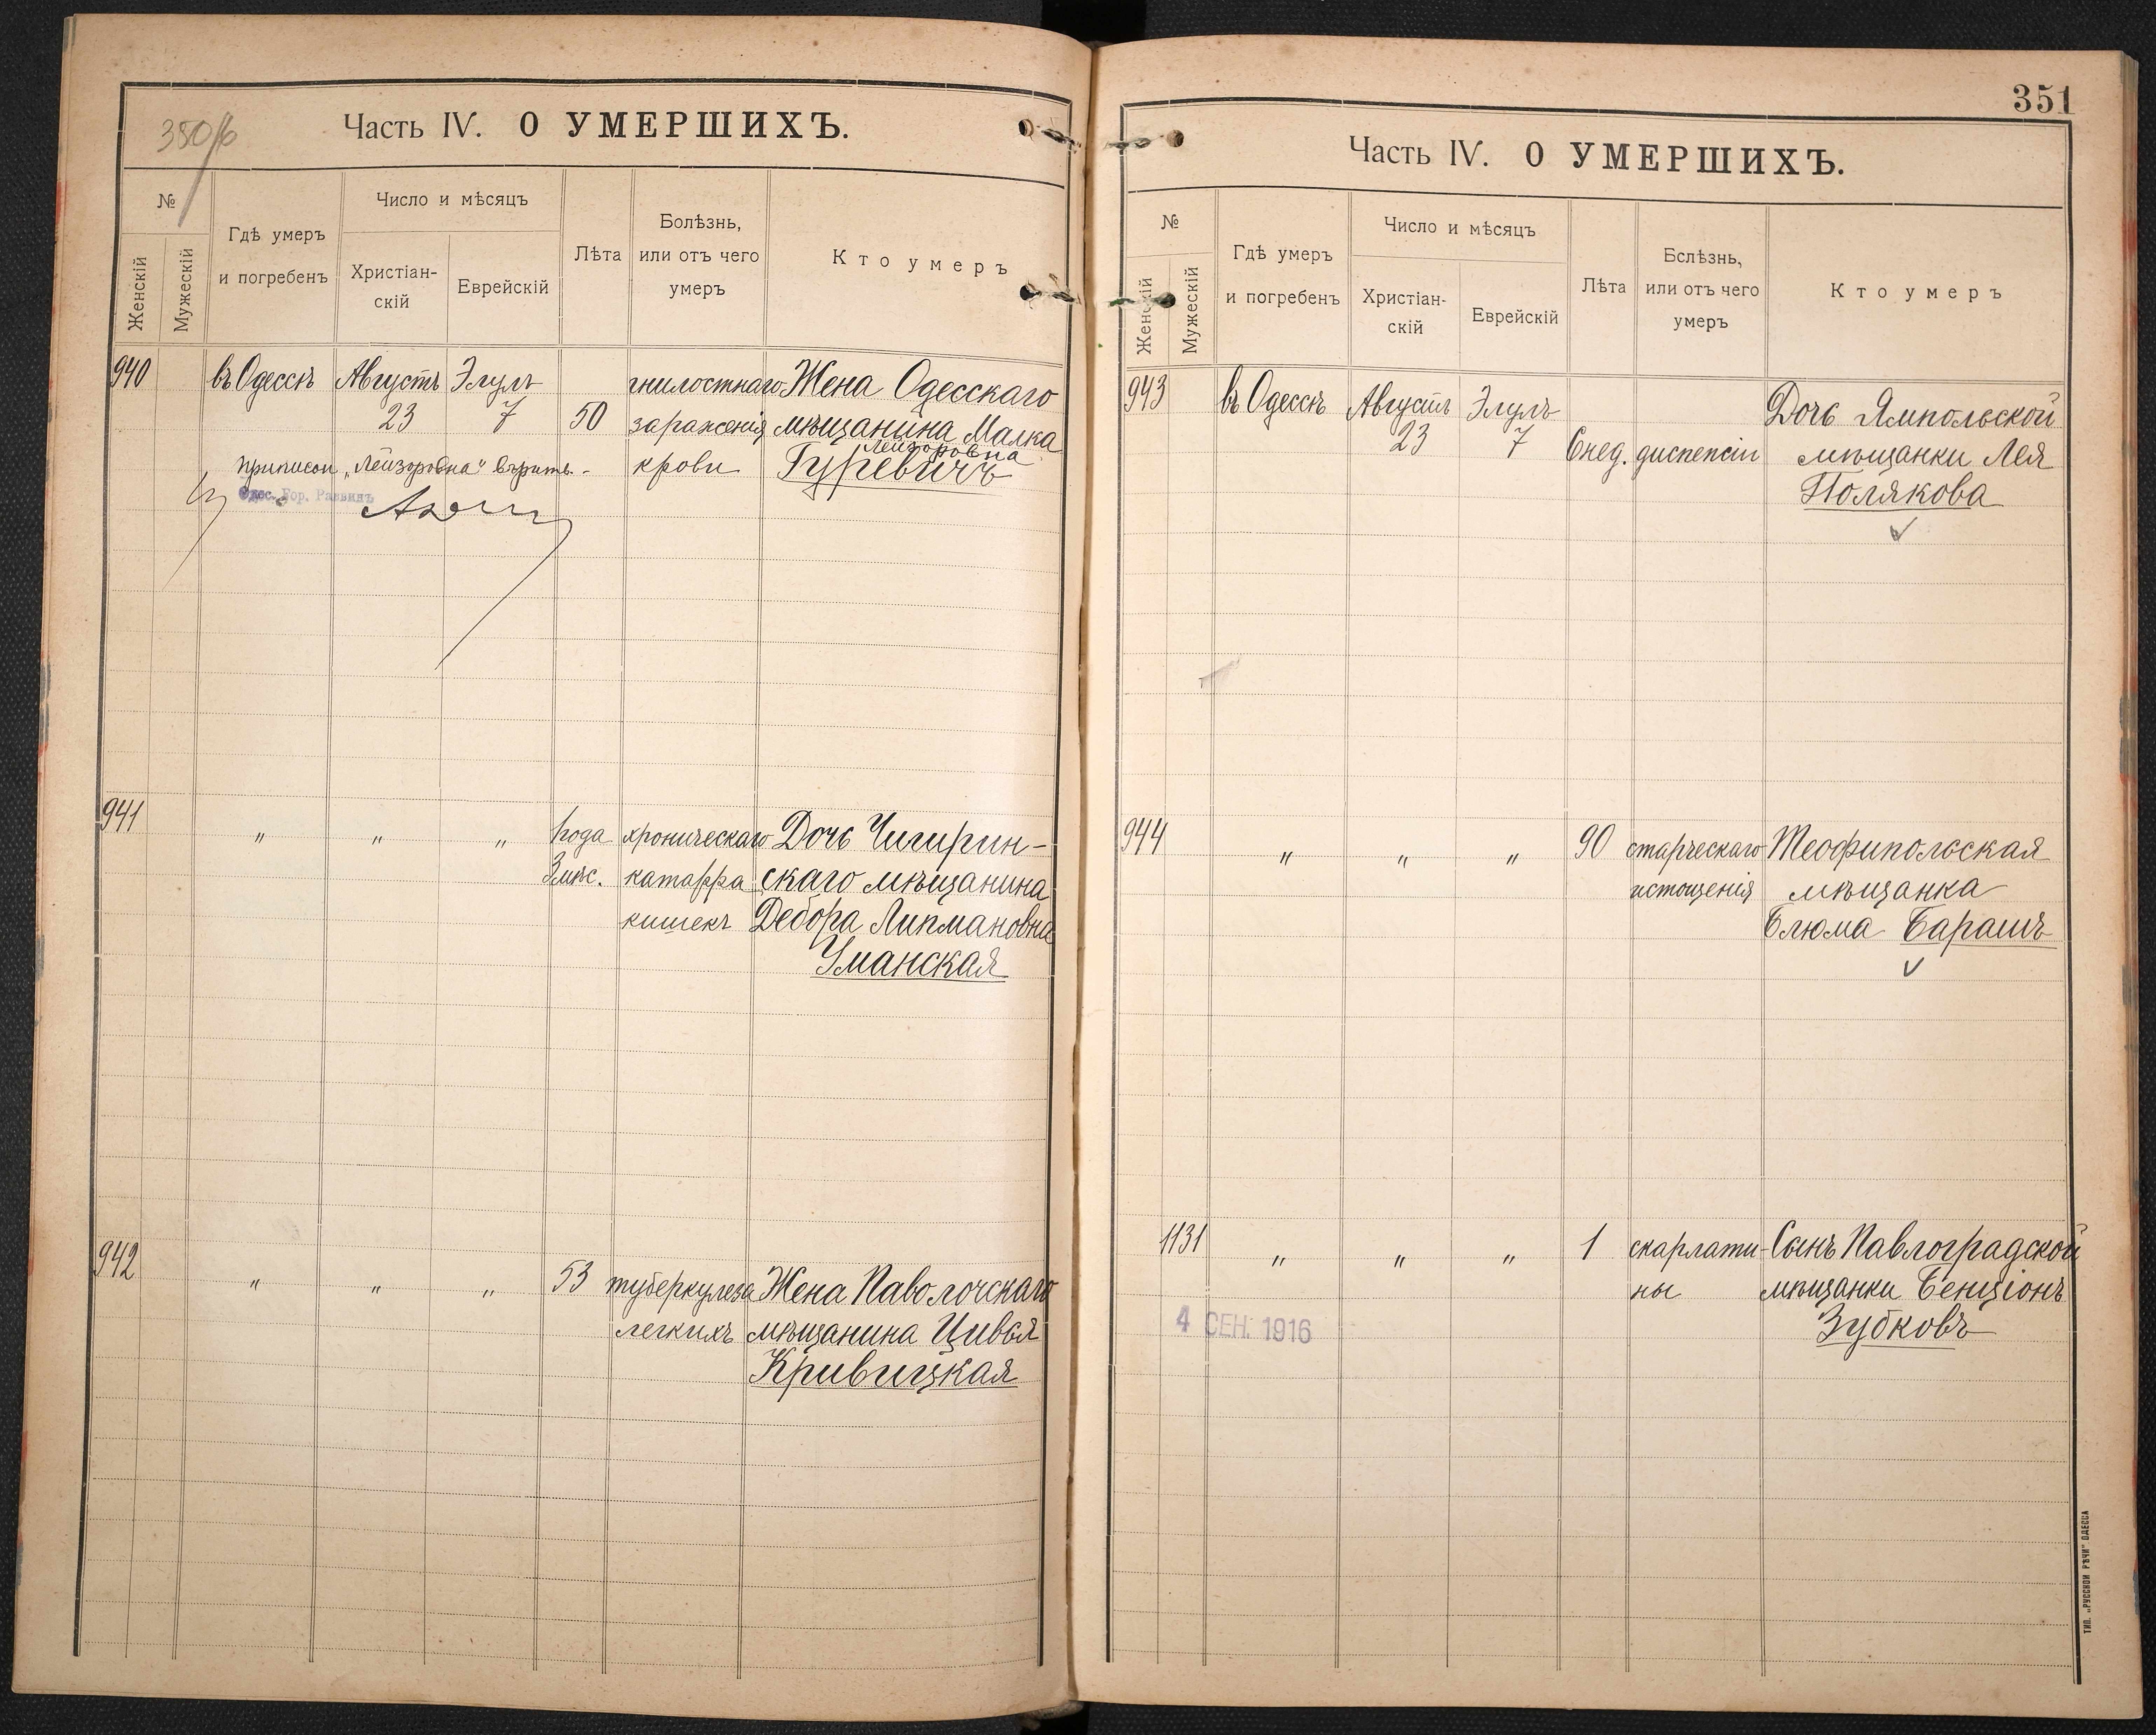 350/б
Часть IV. О УМЕРШИХЪ.
№
Женскій
Мужескій
Гдѣ умеръ
и погребенъ
Число и мѣсяцъ
Христіан-
скій
Еврейскій
Лѣта
Болѣзнь,
или отъ чего
умеръ
Кто умеръ
940
въ Одессѣ
Августъ
23
Элулъ
7
50
гнилостнаго
зараженія
крови
Жена Одесскаго
мѣщанина Малка
Лейзоровна
Гуревичъ
приписан „Лейзоровна" вѣрить.-
Одес. Гор. Раввинъ
941
"
"
"
1 года
3 мѣс.
хроническаго
катарра
кишекъ
Дочь Чигирин-
скаго мѣщанина
Дебора Липмановна
Уманская
942
"
"
"
53
туберкулеза
легкихъ
Жена Паволочскаго
мѣщанина Цивья
Кривицкая
351
Часть IV. О УМЕРШИХЪ.
№
Женскій
Мужескій
Гдѣ умеръ
и погребенъ
Число и мѣсяцъ
Христіан-
скій
Еврейскій
Лѣта
Бслѣзнь,
или отъ чего
умеръ
Кто умеръ
943
въ Одессѣ
Августъ
23
Элулъ
7
6 нед.
диспепсіи
Дочь Ямпольской
мѣщанки Лея
Полякова
944
"
"
"
90
старческаго
истощенія
Теофипольская
мѣщанка
Блюма Барашъ
1131
"
"
"
1
скарлати-
ны
Сынъ Павлоградской
мѣщанки Бенціонъ
Зубковъ
4 СЕН. 1916
ТИП. „РУССКОЙ РѢЧИ" ОДЕССА